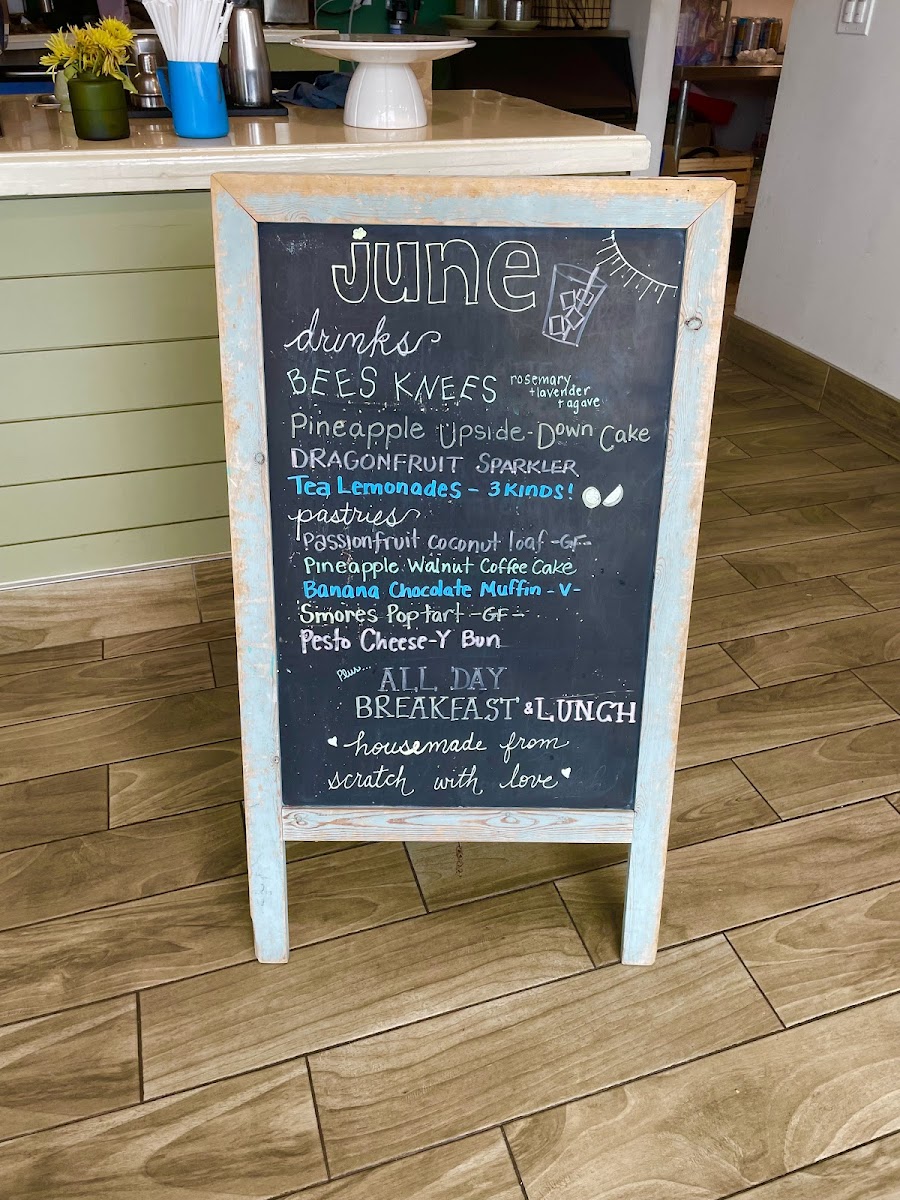 june
drinks
BEES KNEES rosemary
+lavender
+agave
Pineapple Upside-Down Cake
DRAGONFRUIT SPARKLER
Tea Lemonades - 3 KINDS!
pastries
Passionfruit coconut loaf -GF-
Pineapple Walnut Coffee Cake
Banana Chocolate Muffin -V-
S'mores Poptart -GF-
Pesto Cheese-Y Bun
Plus... ALL DAY
BREAKFAST & LUNCH
housemade from
scratch with love